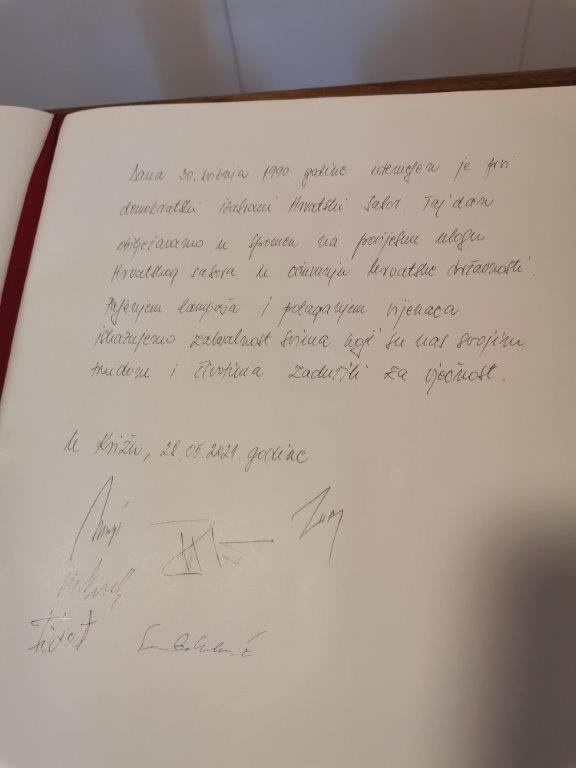 Dana 30. svibnja 1990 godine utemeljen je prvi
demokratski izabrani Hrvatski Sabor. Taj dan
obilježavamo u spomen na povijesnu ulogu
Hrvatskog sabora u očuvanju hrvatske državnosti.
Paljenjem lampaša i polaganjem vijenaca
iskazujemo zahvalnost svima koji su nas svojim
trudom i životima zadužili za vječnost.
U Križu, 28.05.2021. godine